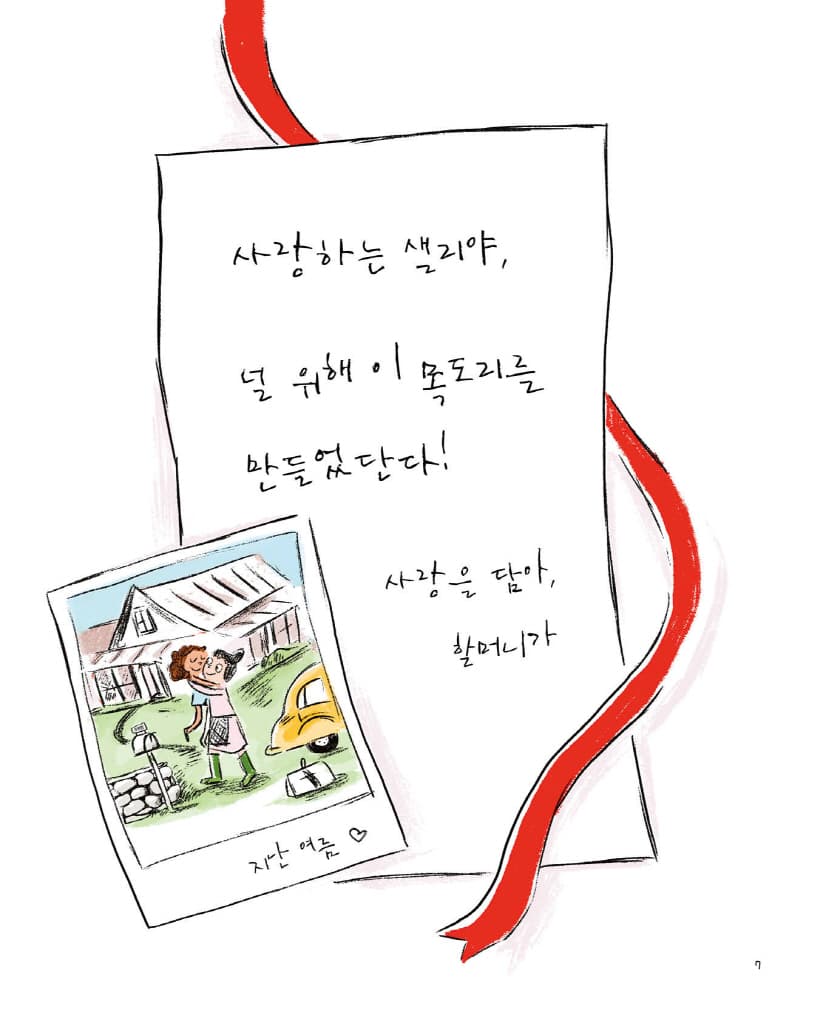 사랑하는 샐리야,
널 위해 이 목도리를
만들었단다!
사랑을 담아,
할머니가
지난 여름 ♡
7